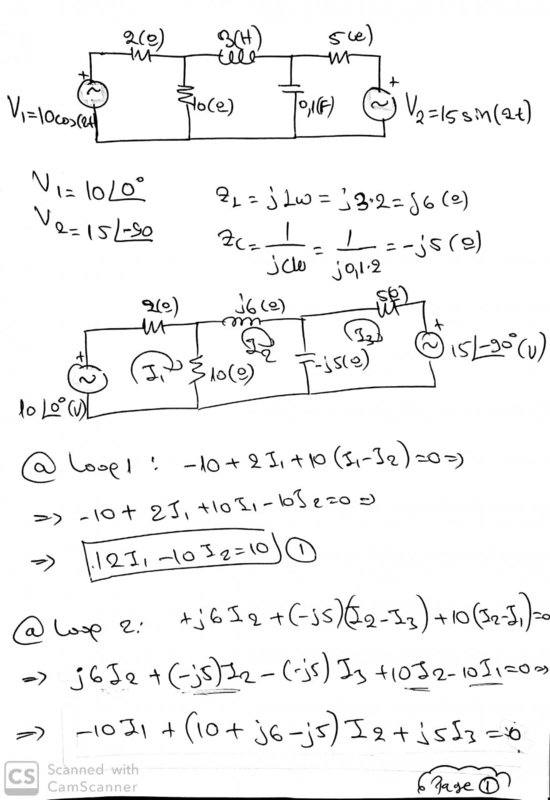 2(Ω) 3(H) 5(Ω)
V₁=10cos(2t) 10(Ω) 0,1(F) V₂=15sin(2t)
V₁=10∠0°
V₂=15∠-90
Z_L=jLω=j3·2=j6(Ω)
Z_C=1/jCω=1/j0,1·2=-j5(Ω)
2(Ω) j6(Ω) 5(Ω)
I₁ I₂ I₃
10∠0°(V) 10(Ω) -j5(Ω) 15∠-90°(V)
@ Loop 1: -10+2I₁+10(I₁-I₂)=0=>
=> -10+2I₁+10I₁-10I₂=0=>
=> 12I₁-10I₂=10 ①
@ Loop 2: +j6I₂+(-j5)(I₂-I₃)+10(I₂-I₁)=0
=> j6I₂+(-j5)I₂-(-j5)I₃+10I₂-10I₁=0=>
=> -10I₁+(10+j6-j5)I₂+j5I₃=0
CS Scanned with
CamScanner
Page ①